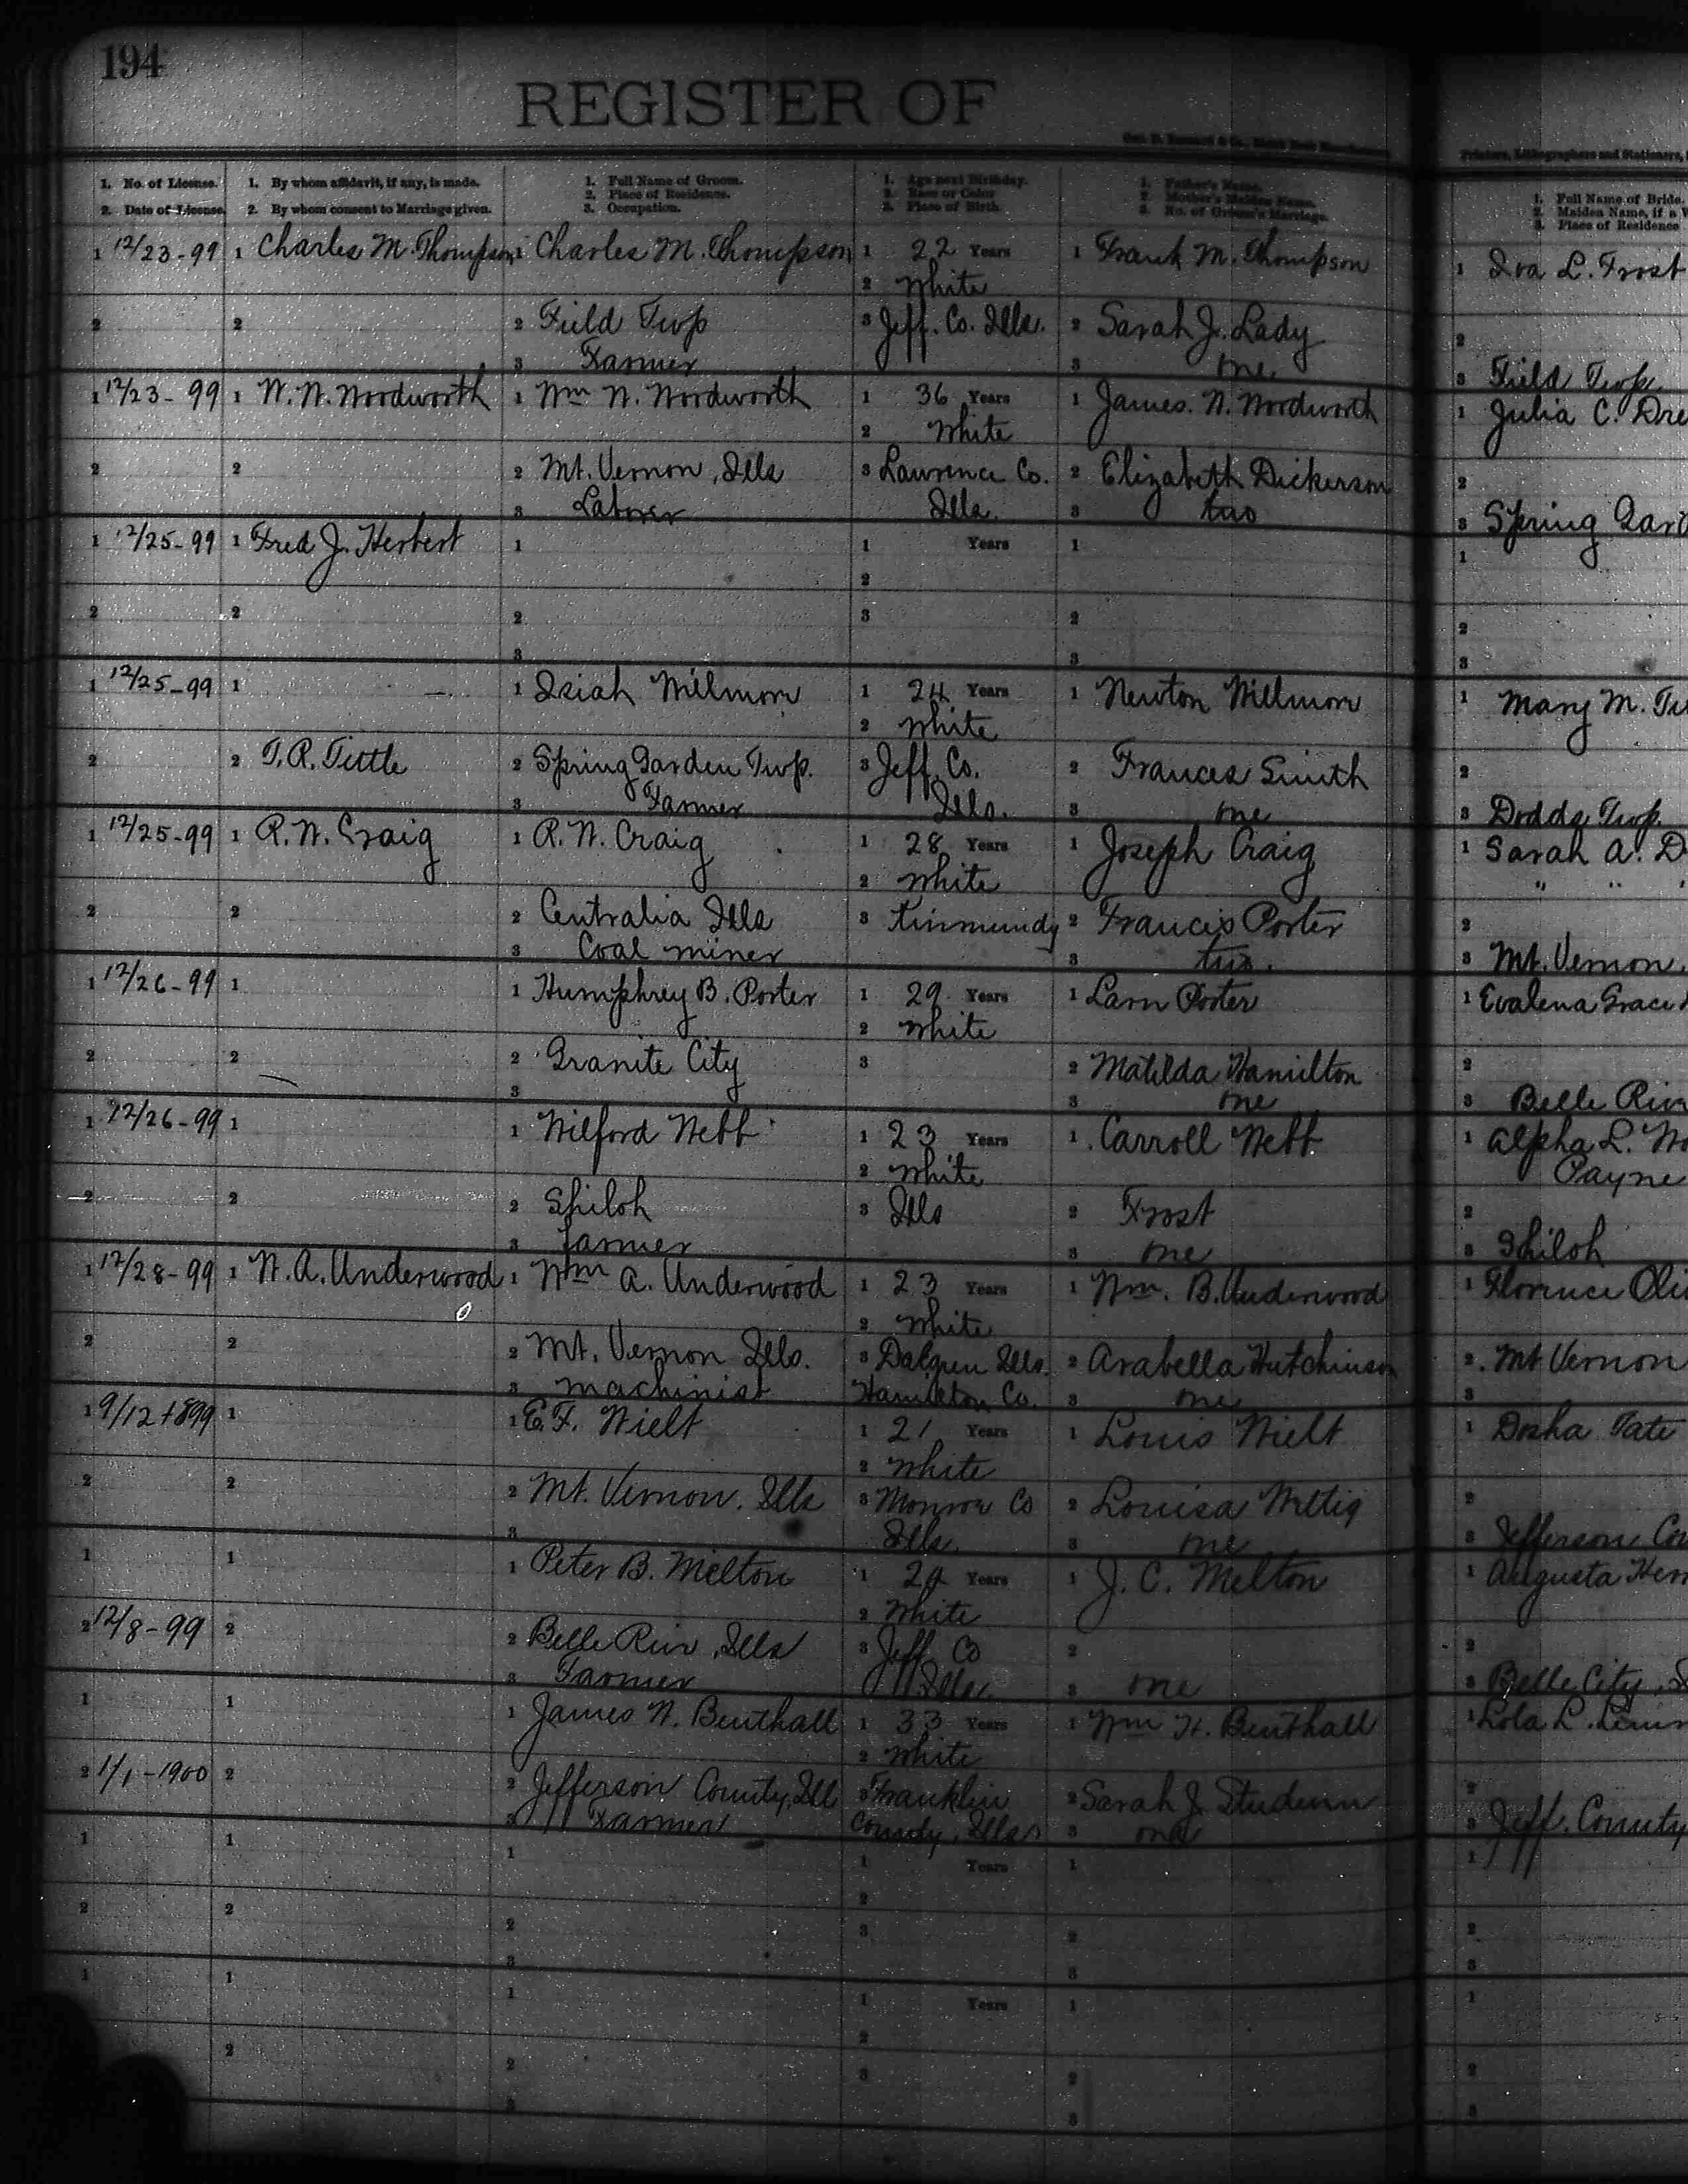 194
REGISTER OF
1. No. of License. 1. By whom affidavit, if any, is made. 1. Full Name of Groom. 1. Age next Birthday. 1. Father's Name. 1. Full Name of Bride.
2. Place of Residence. 2. Race or Color 2. Mother's Maiden Name. 2. Maiden Name, if a W
2. Date of License. 2. By whom consent to Marriage given. 3. Occupation. 3. Place of Birth. 3. No. of Groom's Marriage. 3. Place of Residence
Printers, Lithographers and Stationers,
1 12/23-99 1 Charles M. Thompson 1 Charles M. Thompson 1 22 Years 1 Frank M. Thompson 1 Iva L. Frost
2 White
2 2 2 Field Twp 3 Jeff. Co. Ills. 2 Sarah J. Lady 2
3 Farmer 3 one 3 Field Twp.
1 12/23-99 1 W. W. Woodworth 1 Wm W. Woodworth 1 36 Years 1 James. W. Woodworth 1 Julia C. Dre
2 White
2 2 2 Mt. Vernon, Ills 3 Lawrence Co. 2 Elizabeth Dickerson 2
3 Laborer Ills. 3 two 3 Spring Gard
1 12/25-99 1 Fred J. Herbert 1 1 Years 1 1
2
2 2 2 3 2 2
3 3 3
1 12/25-99 1 1 Isiah Willmore 1 24 Years 1 Newton Willmore 1 Mary M. Tu
2 White
2 2 T. R. Tittle 2 Spring Garden Twp. 3 Jeff. Co. 2 Frances Smith 2
3 Farmer Ills. 3 one 3 Dodds Twp.
1 12/25-99 1 R. W. Craig 1 R. W. Craig 1 28 Years 1 Joseph Craig 1 Sarah A. D
2 White " " "
2 2 2 Centralia Ills 3 Kinmundy 2 Francis Porter 2
3 Coal miner 3 two. 3 Mt. Vernon.
1 12/26-99 1 1 Humphrey B. Porter 1 29 Years 1 Larn Porter 1 Evalena Grace
2 White
2 2 2 Granite City 3 2 Matilda Hamilton 2
3 3 one 3 Belle Rive
1 12/26-99 1 1 Wilford Webb 1 23 Years 1 Carroll Webb. 1 Alpha L. Wo
2 White Payne
2 2 2 Shiloh 3 Ills 2 Frost 2
3 farmer 3 one 3 Shiloh
1 12/28-99 1 W. A. Underwood 1 Wm A. Underwood 1 23 Years 1 Wm. B. Underwood 1 Florence Oli
2 White
2 2 2 Mt. Vernon Ills. 3 Dalgren Ills. 2 Arabella Hutchinson 2. Mt Vernon
3 machinist Hamilton Co. 3 one 3
1 9/12 1899 1 1 E. F. Wielt 1 21 Years 1 Louis Wielt 1 Dosha Tate
2 White
2 2 2 Mt. Vernon. Ills 3 Monroe Co 2 Louisa Wittig 2
3 Ills. 3 one 3 Jefferson Co
1 1 1 Peter B. Melton 1 24 Years 1 J. C. Melton 1 Augusta Herr
2 White
2 12/8-99 2 2 Belle Rive, Ills 3 Jeff Co 2 2
3 Farmer Ills. 3 one 3 Belle City,
1 1 1 James W. Benthall 1 33 Years 1 Wm H. Benthall 1 Lola L.
2 White
2 1/1-1900 2 2 Jefferson County, Ill 3 Franklin 2 Sarah J. 2
3 Farmer County, Ills 3 one 3 Jeff. County
1 1 1 1 Years 1 1
2
2 2 2 3 2 2
3 3 3
1 1 1 1 Years 1 1
2
2 2 3 2 2
3 3 3